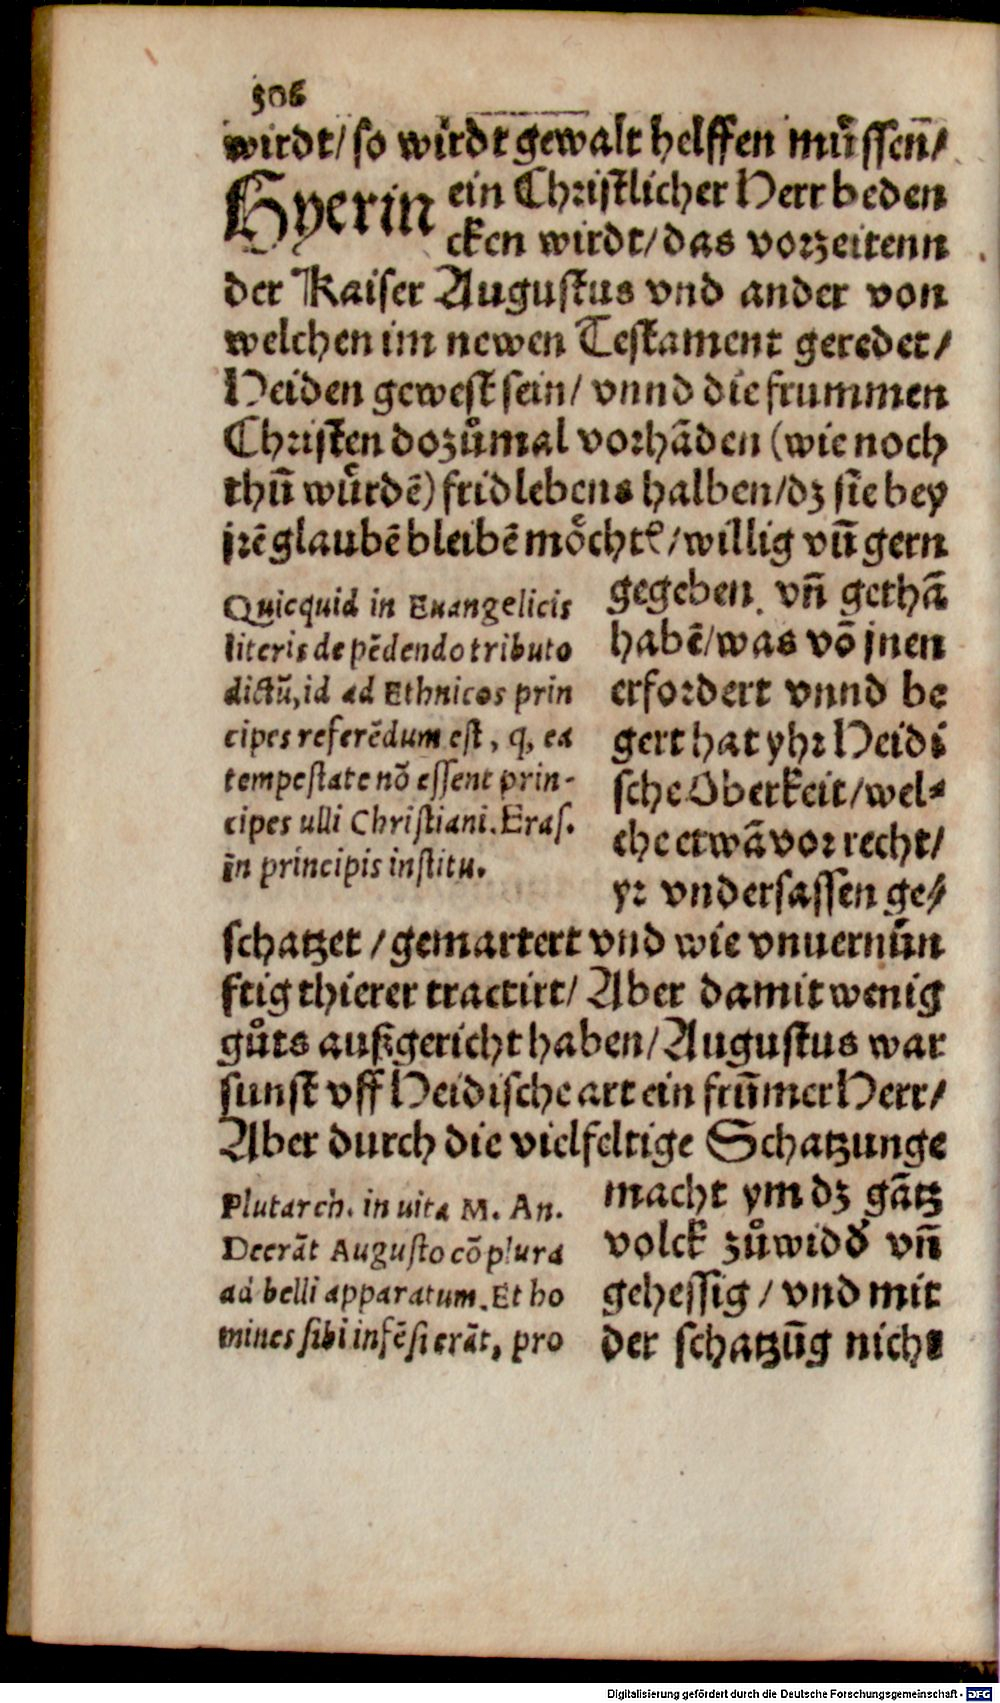 306
wirdt/ so wirdt gewalt helffen müſſen̄/
Hyerin ein Chriſtlicher Herr beden
cken wirdt/ das vorzeitenn
der Kaiſer Auguſtus vnd ander von
welchen im newen Teſtament geredet/
Heiden geweſt ſein/ vnnd die frummen
Chriſten dozůmal vorhādē (wie noch
thūn würdē) fridlebens halben/ dz ſie bey
jrē glaubē bleibē möchtē/ willig vn̄ gern
gegeben vn̄ gethā
habē/ was vō jnen
erfordert vnnd be
gert hat yhr Heidi
ſche Oberkeit/ wel-
che etwā vor recht/
yr vnderſaſſen ge/
Quicquid in Euangelicis
literis de pēdendo tributo
dictū, id ad Ethnicos prin
cipes referēdum eſt, q, ea
tempeſtate nō eſſent prin-
cipes ulli Chriſtiani. Eraſ.
in principis inſtitu.
ſchatzet / gemartert vnd wie vnuernün
ftig thierer tractirt/ Aber damit wenig
gůts auſzgericht haben/ Auguſtus war
ſunſt vff Heidiſche art ein frūmer Herr/
Aber durch die vielfeltige Schatzunge
macht ym dz gātz
volck zůwidd̕ vn̄
geheſſig / vnd mit
der ſchatzūg nicht
Plutarch. in uita M. An.
Deerāt Auguſto cōplura
ad belli apparatum. Et ho
mines ſibi infēſi erāt, pro
Digitalisierung gefördert durch die Deutsche Forschungsgemeinschaft - DFG